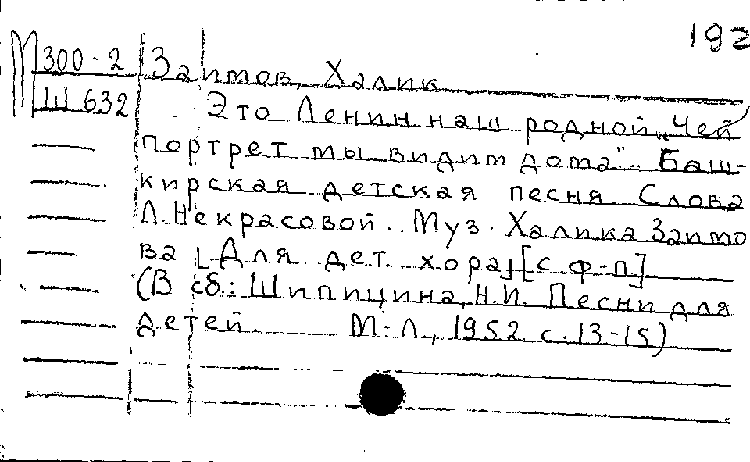 192
М300-2 Заимов, Халик
Ш 632 Это Ленин наш родной „Чей
портрет мы видим дома". Баш-
кирская детская песня Слова
Л. Некрасовой. Муз. Халика Заимо
ва [Для дет. хора] [с ф-п]
(В сб.: Шипицина, Н.И. Песни для
детей М.-Л., 1952 с. 13-15)